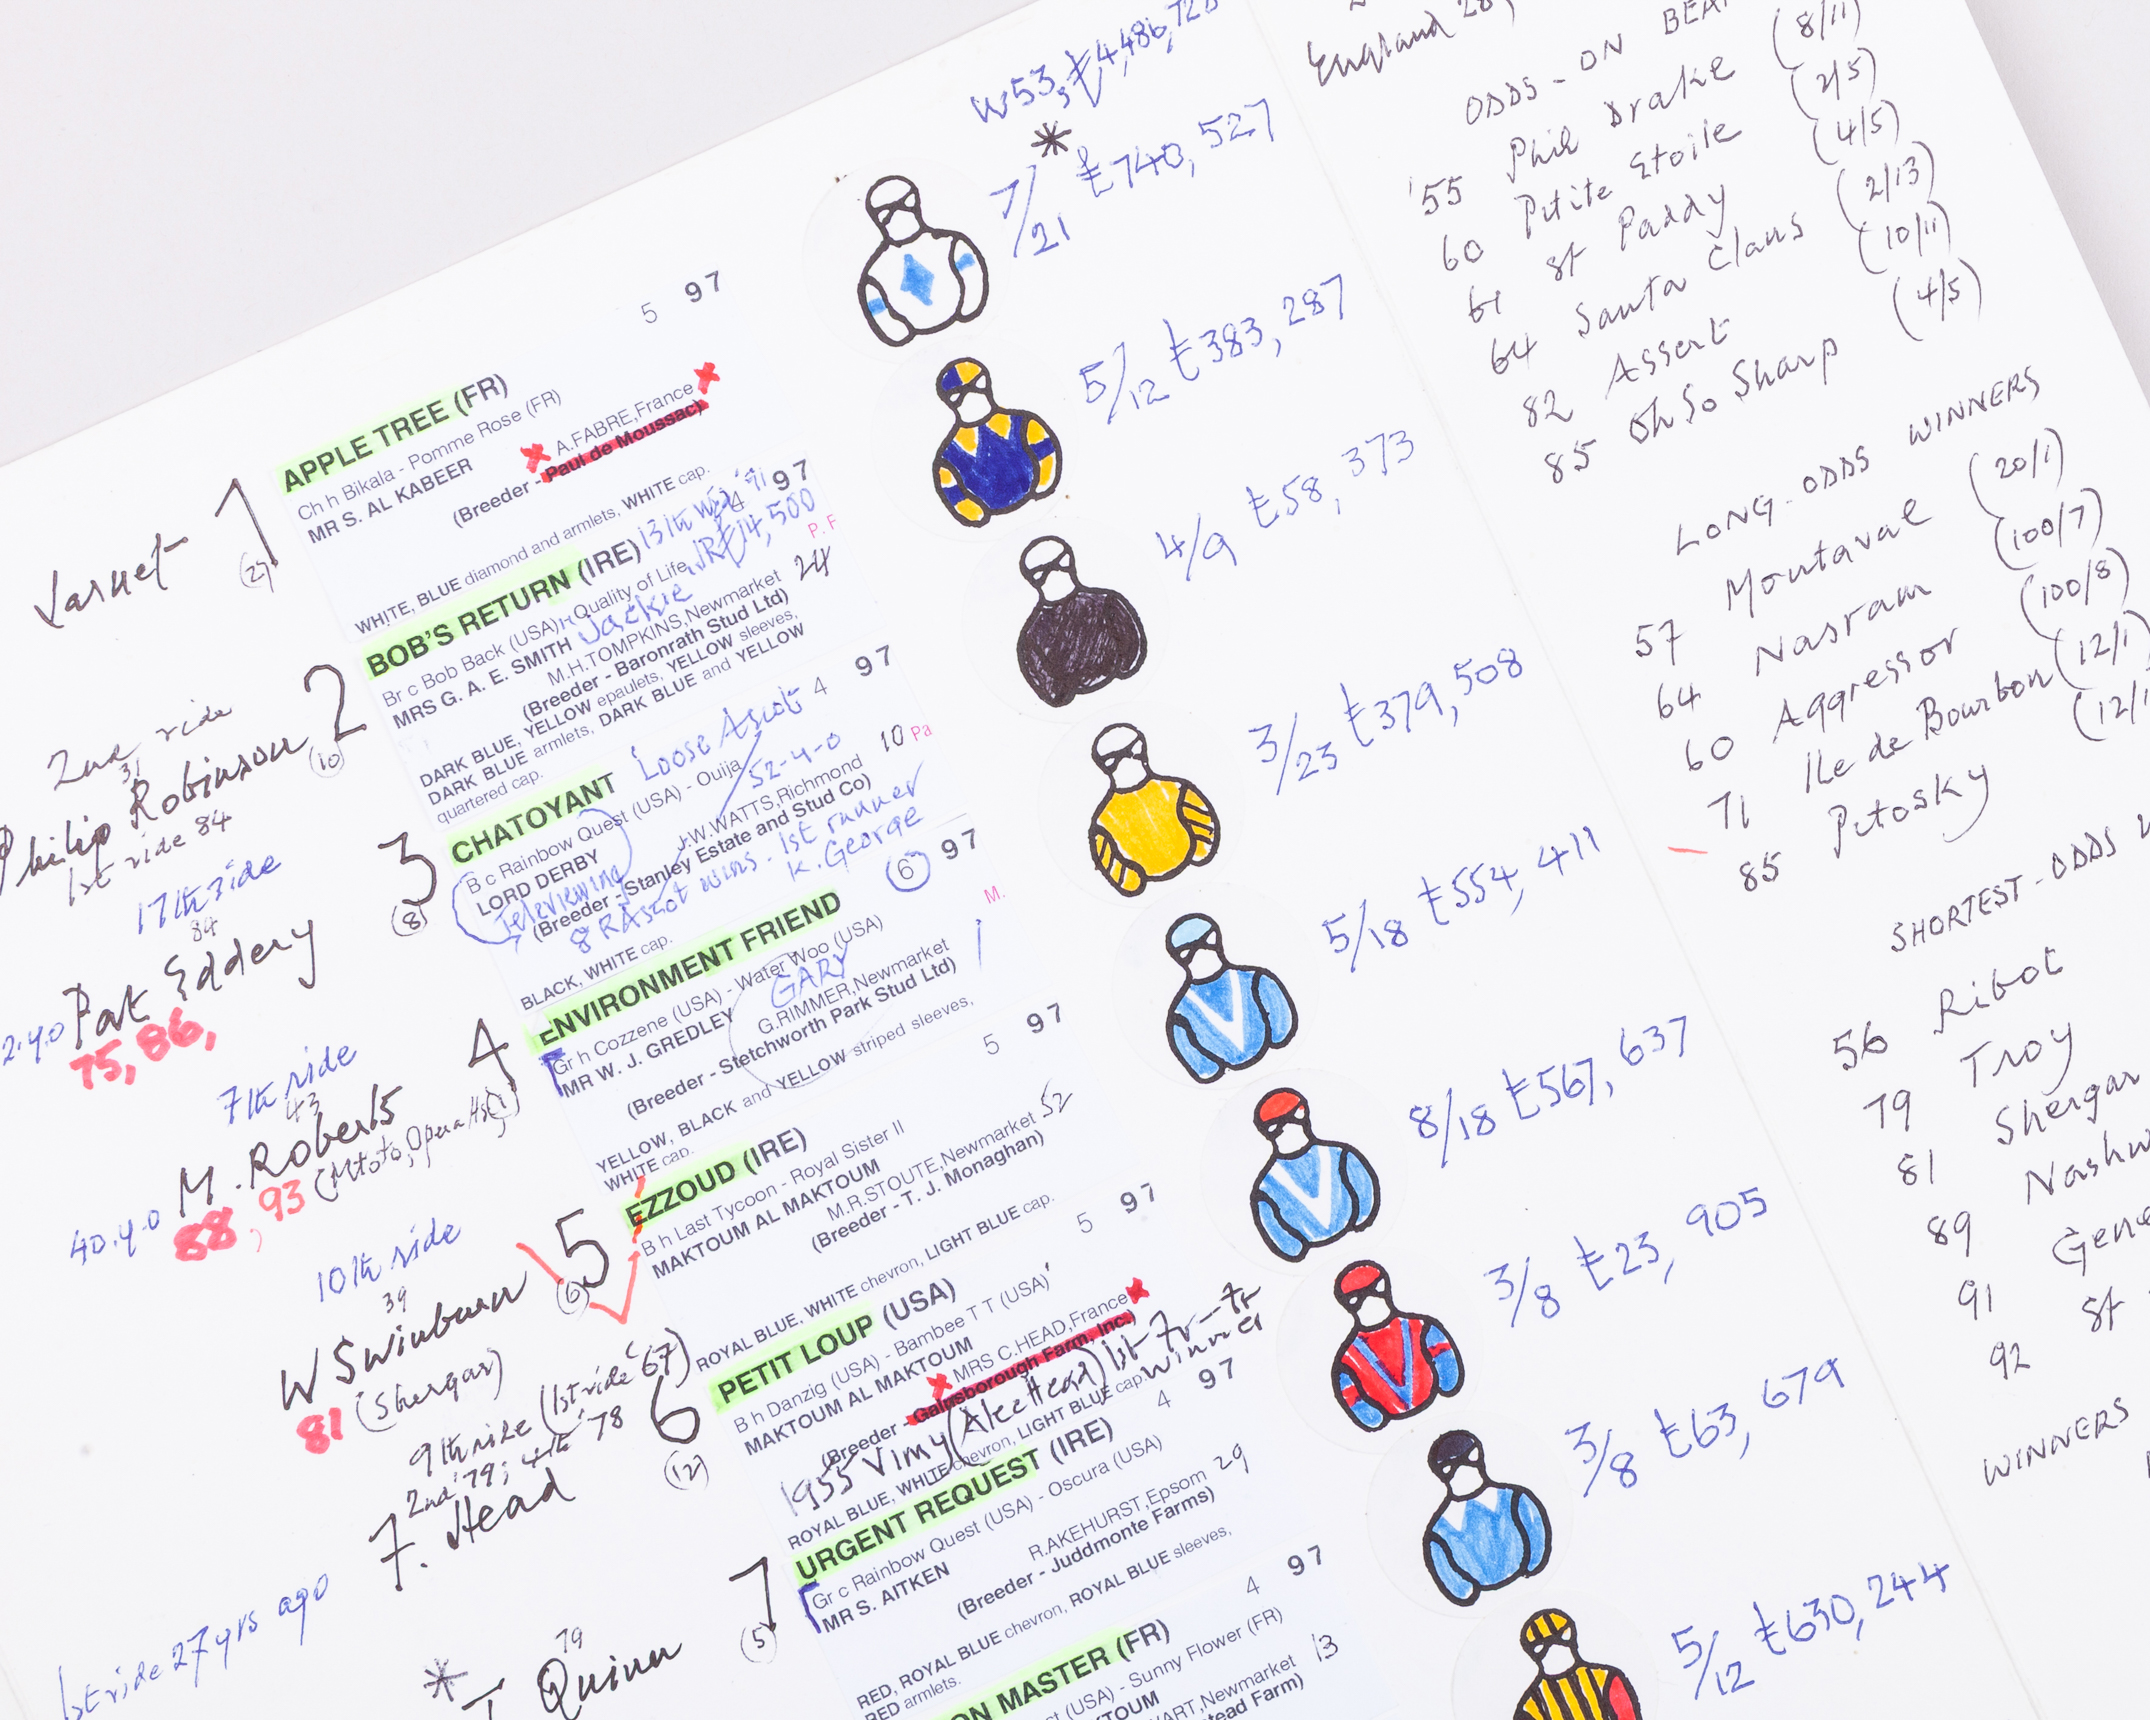 W53, £4,486,728
*
7/21 £740,527
5/12 £383,287
4/9 £58,373
3/23 £379,508
5/18 £554,411
8/18 £567,637
3/8 £23,905
3/8 £63,679
5/12 £630,244
Jarnet 1
5 97
APPLE TREE (FR)
Ch h Bikala - Pomme Rose (FR)
MR S. AL KABEER
A.FABRE,France
(Breeder - Paul de Moussac)
WHITE, BLUE diamond and armlets, WHITE cap.
2nd ride
31
Philip Robinson 2
(10)
1st ride 84
4 97
BOB'S RETURN (IRE) 13th
IR£14,500
P.F
Br c Bob Back (USA) - Quality of Life
MRS G. A. E. SMITH Jackie
M.H.TOMPKINS,Newmarket 24
(Breeder - Baronrath Stud Ltd)
DARK BLUE, YELLOW epaulets, YELLOW sleeves,
DARK BLUE armlets, DARK BLUE and YELLOW
quartered cap.
17th ride
84
Pat Eddery 3
(8)
75, 86,
4 97
CHATOYANT 'Loose Ascot
B c Rainbow Quest (USA) - Ouija
52-4-0 10 Pa
LORD DERBY
J.W.WATTS,Richmond
Televiewing
(Breeder - Stanley Estate and Stud Co)
8 RAscot wins. 1st runner
K. George
BLACK, WHITE cap.
7th ride
43
M. Roberts 4
(Mtoto, Opera Hse)
40.4-0 88, 93
6 97
ENVIRONMENT FRIEND
M.
Gr h Cozzene (USA) - Water Woo (USA)
MR W. J. GREDLEY
GARY
G.RIMMER,Newmarket 1
(Breeder - Stetchworth Park Stud Ltd)
YELLOW, BLACK and YELLOW striped sleeves,
WHITE cap.
10th ride
39
W Swinburn 5
(6)
81 (Shergar)
5 97
EZZOUD (IRE)
B h Last Tycoon - Royal Sister II
MAKTOUM AL MAKTOUM
M.R.STOUTE,Newmarket 52
(Breeder - T. J. Monaghan)
ROYAL BLUE, WHITE chevron, LIGHT BLUE cap.
9th ride (1st ride '67)
2nd '79; 4th '78
F. Head 6
(12)
1st ride 27 yrs ago
5 97
PETIT LOUP (USA)
B h Danzig (USA) - Bambee T T (USA)
MAKTOUM AL MAKTOUM
MRS C.HEAD,France
(Breeder - Gainsborough Farm, Inc.)
1955 Vimy (Alec Head) 1st Fr-Tr
winner
ROYAL BLUE, WHITE chevron, LIGHT BLUE cap.
79
* T Quinn 7
(5)
4 97
URGENT REQUEST (IRE)
Gr c Rainbow Quest (USA) - Oscura (USA)
MR S. AITKEN
R.AKEHURST,Epsom 29
(Breeder - Juddmonte Farms)
RED, ROYAL BLUE chevron, ROYAL BLUE sleeves,
RED armlets.
4 97
ON MASTER (FR)
(USA) - Sunny Flower (FR)
KTOUM
ART,Newmarket 13
tead Farm)
England 28
ODDS-ON BEA
'55 Phil Drake (8/11)
60 Petite Etoile (2/5)
61 St Paddy (4/5)
64 Santa Claus (2/13)
82 Assert (10/11)
85 Oh So Sharp (4/5)
LONG-ODDS WINNERS
57 Montaval (20/1)
64 Nasram (100/7)
60 Aggressor (100/8)
71 Ile de Bourbon (12/1)
85 Petosky (12/1
SHORTEST-ODDS W
56 Ribot
79 Troy
81 Shergar
89 Nashw
91 Gene
92 St
WINNERS